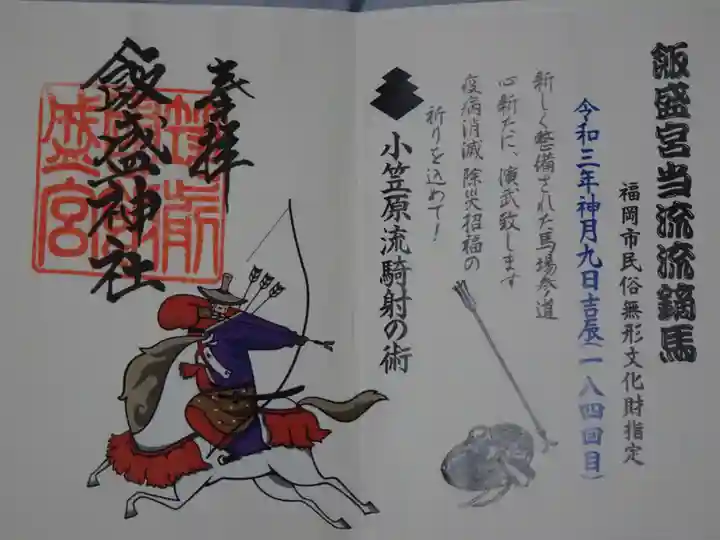 飯盛宮当流流鏑馬
福岡市民俗無形文化財指定
令和三年神月九日吉辰(一八四回目)
新しく整備された馬場参道
心新たに、演武致します
疫病消滅除災招福の
祈りを込めて!
小笠原流騎射の術
奉拝
飯盛神社
盛宮